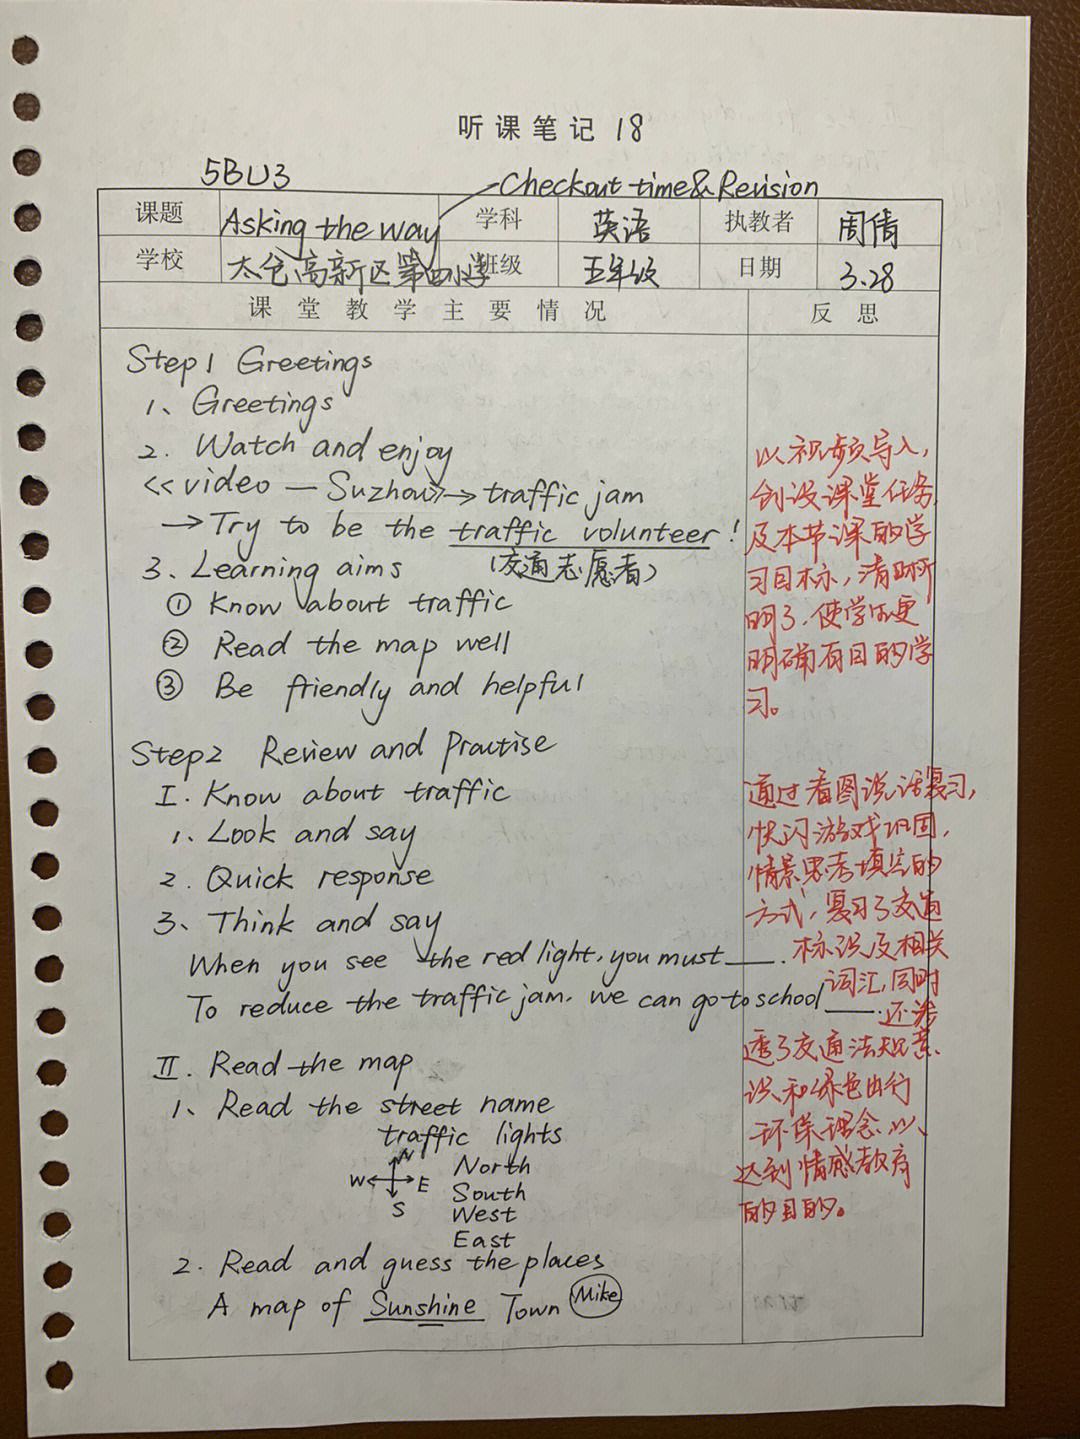 听课笔记 18
5BU3
Checkout time & Revision
课题 Asking the way 学科 英语 执教者 周倩
学校 太仓高新区第四小学 班级 五年级 日期 3.28
课堂教学主要情况 反思
Step1 Greetings
1、Greetings
2. Watch and enjoy
<<video — Suzhou>>→traffic jam
→Try to be the traffic volunteer!
(交通志愿者)
3、Learning aims
① Know about traffic
② Read the map well
③ Be friendly and helpful
Step2 Review and Practise
I. Know about traffic
1、Look and say
2. Quick response
3、Think and say
When you see the red light, you must ___.
To reduce the traffic jam, we can go to school ___.
II. Read the map
1、Read the street name
traffic lights
N
W E
S
North
South
West
East
2. Read and guess the places
A map of Sunshine Town Mike
以视频导入,
创设课堂任务,
及本节课的学
习目标,清晰
明了.使学生更
明确有目的学
习。
通过看图说话复习,
快闪游戏巩固,
情景思考填空的
方式,复习了交通
标识及相关
词汇,同时
还渗
透了交通法规意
识和绿色出行
环保理念.以
达到情感教育
的目的。